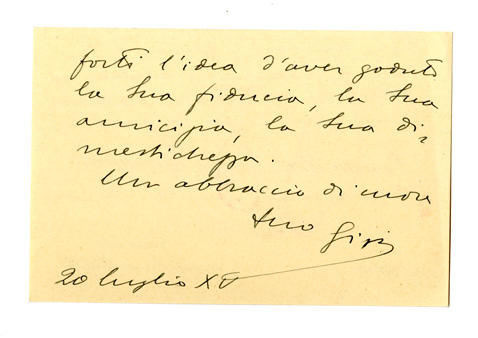 forti l'idea d'aver goduto
la Sua fiducia, la Sua
amicizia, la Sua di=
mestichezza.
Un abbraccio di cuore
Suo
20 luglio XV